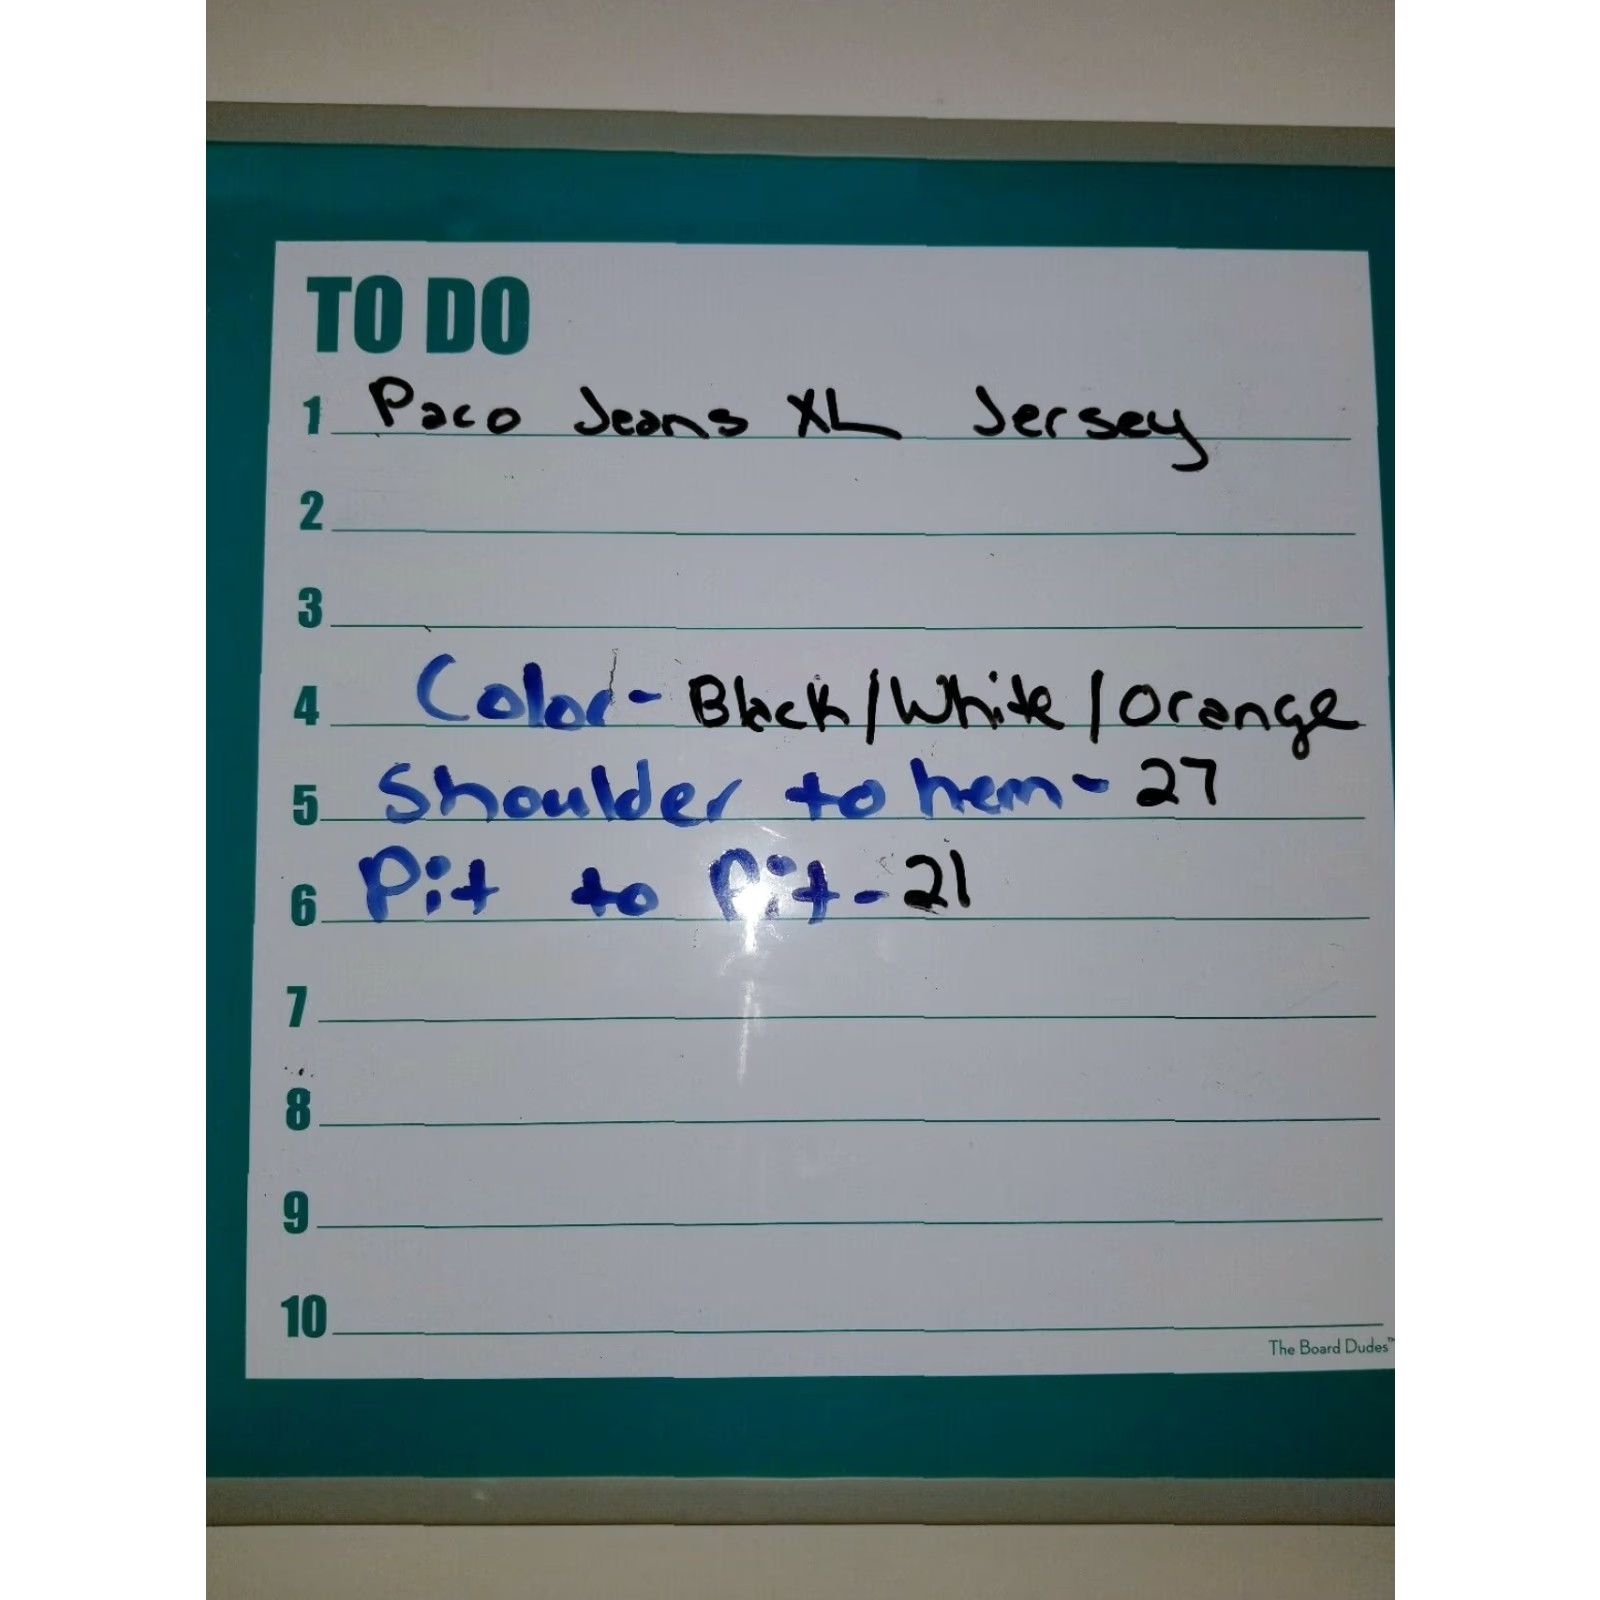 TO DO
1 Paco Jeans XL Jersey
2
3
4 Color- Black/White/Orange
5 Shoulder to hem- 27
6 Pit to Pit- 21
7
8
9
10
The Board Dudes™